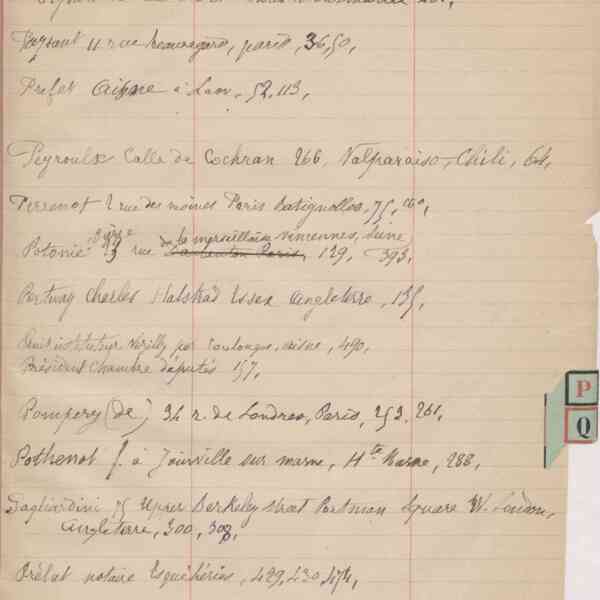 Paysant 11 rue beauregard, paris, 36,50,
Préfet Aisne à Laon, 52, 113,
Peyroulx Calle de Cochran 266, Valparaiso, Chili, 64,
Perrenot 2 rue des moines Paris batignolles, 75, 160,
de la marseillaise vincennes, Seine
Potonié rue 129, 393,
Portway Charles Halstead Essex Angleterre, 135,
instituteur par Coulonges, aisne, 490,
Président Chambre députés 157,
Pompery (de) 34 r. de Londres, Paris, 253, 261,
Pothenot J. à Joinville sur marne, Hte Marne, 288,
Gagliardini 75 Upper Berkeley street Portman Square W. London,
Angleterre, 300, 308,
Prélat notaire Esquéhéries, 429, 430, 474,
P
Q